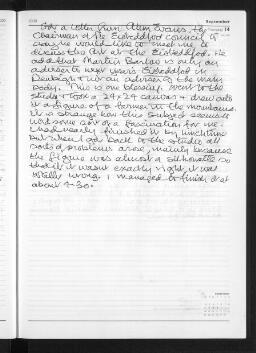 September
14
Got a letter from Alun Evans, the
Chairman of the Eisteddfod Council. It
says he would like to meet me to
discuss the Art at the Eisteddfod. He
adds that Martin Barlow is only an
adviser to next year's Eisteddfod in
Denbigh & is an adviser to the main
body. This is one blessing. Went to the
studio & took a 24 x 24 canvas & drew onto
it a figure of a farmer in the mountains.
It is strange how this subject seems to
hold some sort of a fascination for me.
I had nearly finished it by lunchtime
but when I got back to the studio all
sorts of problems arose, mainly because
the figure was almost a silhouette so
that if it wasn't exactly right, it was
totally wrong. I managed to finish it at
about 4-30.